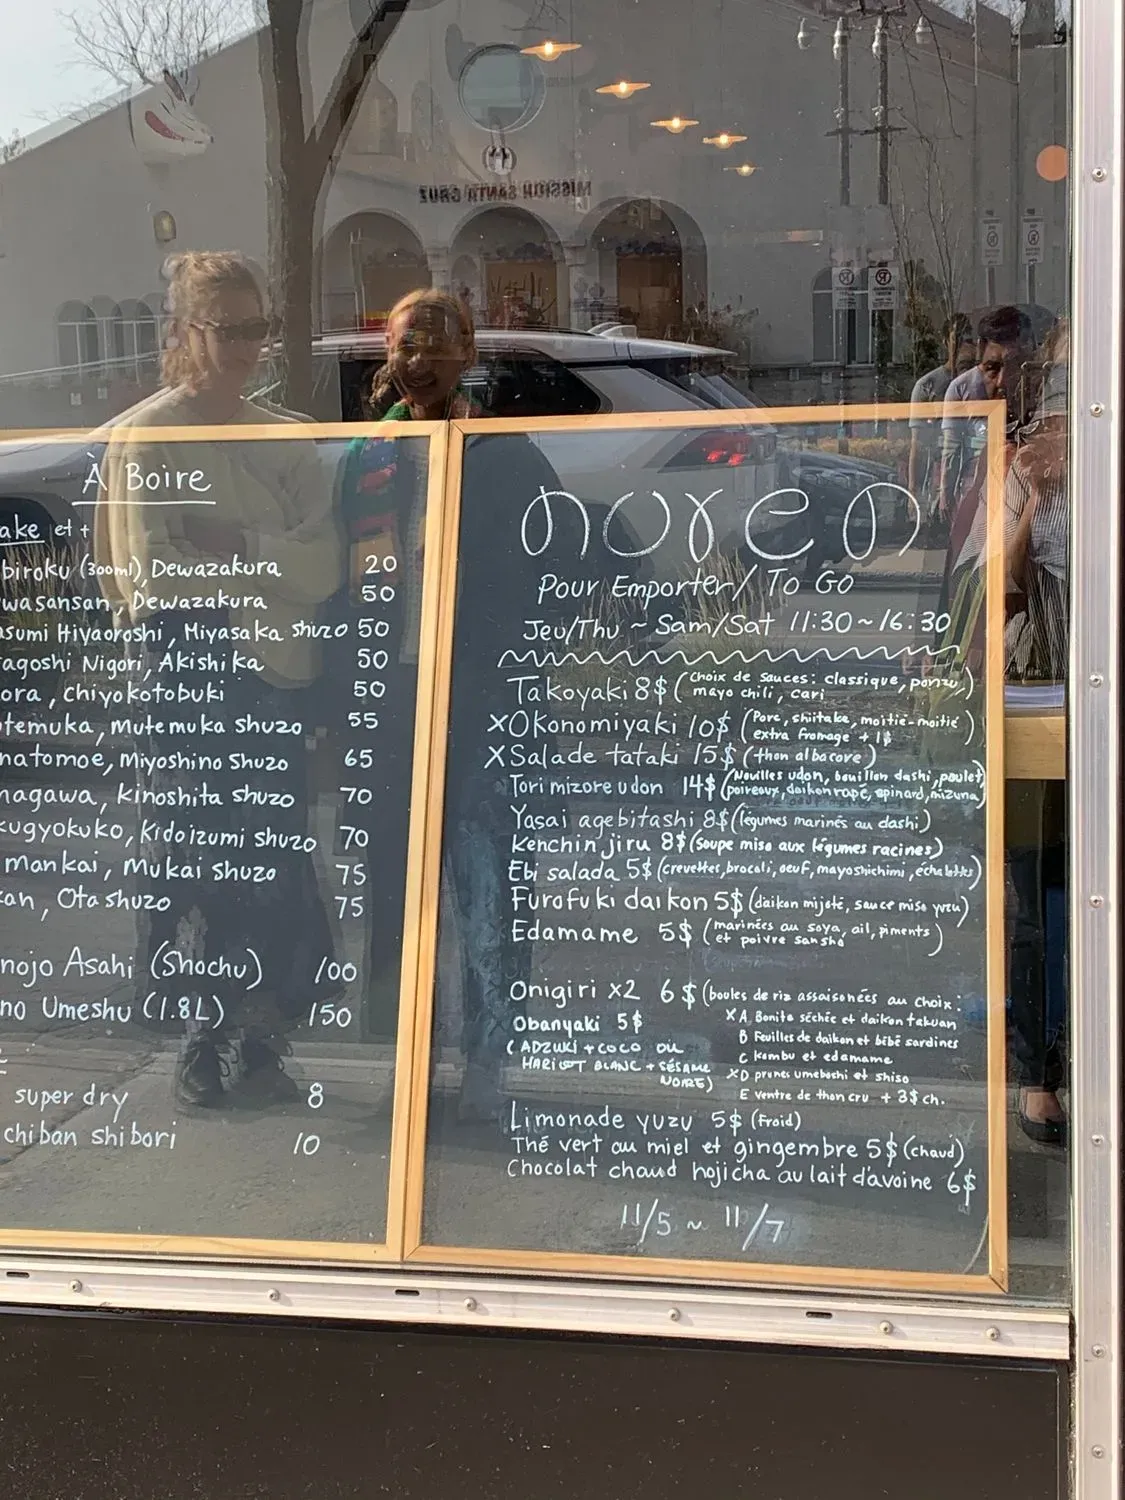 MISSION SANTA CRUZ
À Boire
ake et +
biroku (300ml), Dewazakura 20
wasansan, Dewazakura 50
asumi Hiyaoroshi, Miyasaka shuzo 50
agoshi Nigori, Akishika 50
ora, chiyokotobuki 50
temuka, Mutemuka shuzo 55
natomoe, Miyoshino Shuzo 65
nagawa, kinoshita shuzo 70
kugyokuko, Kidoizumi shuzo 70
mankai, Mukai shuzo 75
kan, Ota shuzo 75
nojo Asahi (Shochu) 100
no Umeshu (1.8L) 150
super dry 8
chiban shibori 10
noren
Pour Emporter/ To Go
Jeu/Thu ~ Sam/Sat 11:30~16:30
Takoyaki 8$ (choix de sauces: classique, ponzu,
mayo chili, cari)
X Okonomiyaki 10$ (Porc, shiitake, moitié-moitié
extra fromage +1$)
X Salade tataki 15$ (thon albacore)
Tori mizore udon 14$ (Nouilles udon, bouillon dashi, poulet,
poireaux, daikon rapé, epinard, mizuna)
Yasai agebitashi 8$ (légumes marinés au dashi)
Kenchin jiru 8$ (soupe miso aux légumes racines)
Ebi salada 5$ (crevettes, brocoli, oeuf, mayo shichimi, echalottes)
Furofuki daikon 5$ (daikon mijoté, sauce miso yuzu)
Edamame 5$ (marinées au soya, ail, piments
et poivre sansho)
Onigiri x2 6$ (boules de riz assaisonées au choix:
X A. Bonito séchée et daikon takuan
B Feuilles de daikon et bébé sardines
C kombu et edamame
X D prunes umeboshi et shiso
E ventre de thon cru +3$ ch.
Obanyaki 5$
(ADZUKI + COCO OU
HARICOT BLANC + SÉSAME
NOIRE)
Limonade yuzu 5$ (Froid)
Thé vert au miel et gingembre 5$ (chaud)
Chocolat chaud hojicha au lait d'avoine 6$
11/5 ~ 11/7